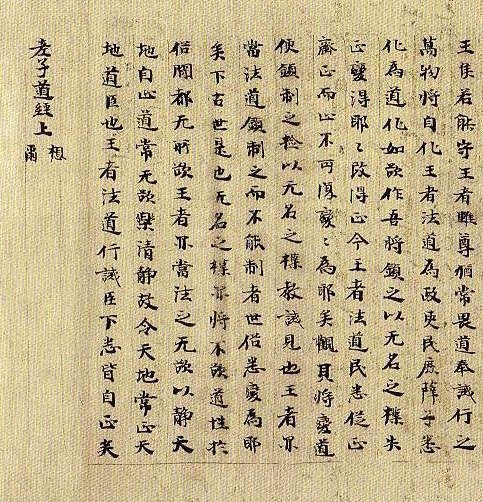 王侯若能守王者雖尊猶常畏道奉誡行之
萬物將自化王者法道為政吏民庶薛子悉
化為道化如欲作吾將鎮之以无名之樸失
正變得耶〻改得正今王者法道民悉從正
齋正而止不可復變〻為耶矣觀其將變道
便鎮制之檢以无名之樸教誡見也王者亦
當法道鎮制之而不能制者世俗悉變為耶
矣下古世是也无名之樸亦將不欲道性於
俗間都无所欲王者亦當法之无欲以静天
地自正道常无欲樂清静故令天地常正天
地道臣也王者法道行誡臣下悉皆自正矣
老子道經上 想爾